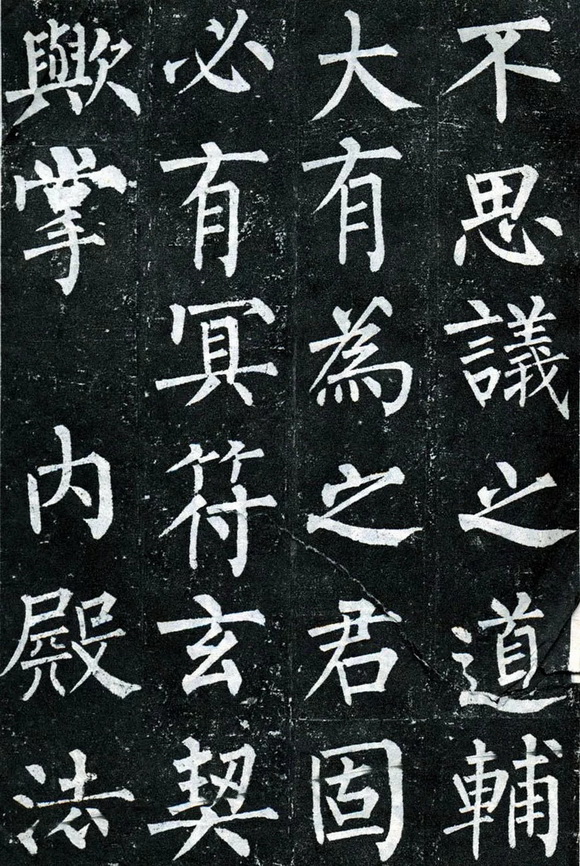 不思議之道輔
大有為之君固
必有冥符玄契
歟掌内殿法